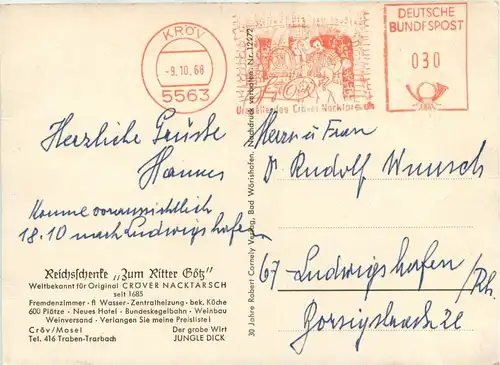 KRÖV
-9.10.68
5563
DEUTSCHE
BUNDESPOST
030
Herzliche Grüße
Hannes
Komme voraussichtlich
18.10 nach Ludwigshafen
Herrn u Frau
Dr. Rudolf Wunsch
67 Ludwigshafen/Rh.
Borsigstrasse 22
Reichsschenke „Zum Ritter Götz"
Weltbekannt für Original CRÖVER NACKTARSCH
seit 1685
Fremdenzimmer · fl Wasser · Zentralheizung · bek. Küche
600 Plätze · Neues Hotel · Bundeskegelbahn · Weinbau
Weinversand · Verlangen Sie meine Preisliste!
Cröv/Mosel Der grobe Wirt
Tel. 416 Traben-Trarbach JUNGLE DICK
30 Jahre Robert Cornely Verlag, Bad Wörishofen. Nachdruck verboten. Nr. 12672
des Cröver Nacktarsch